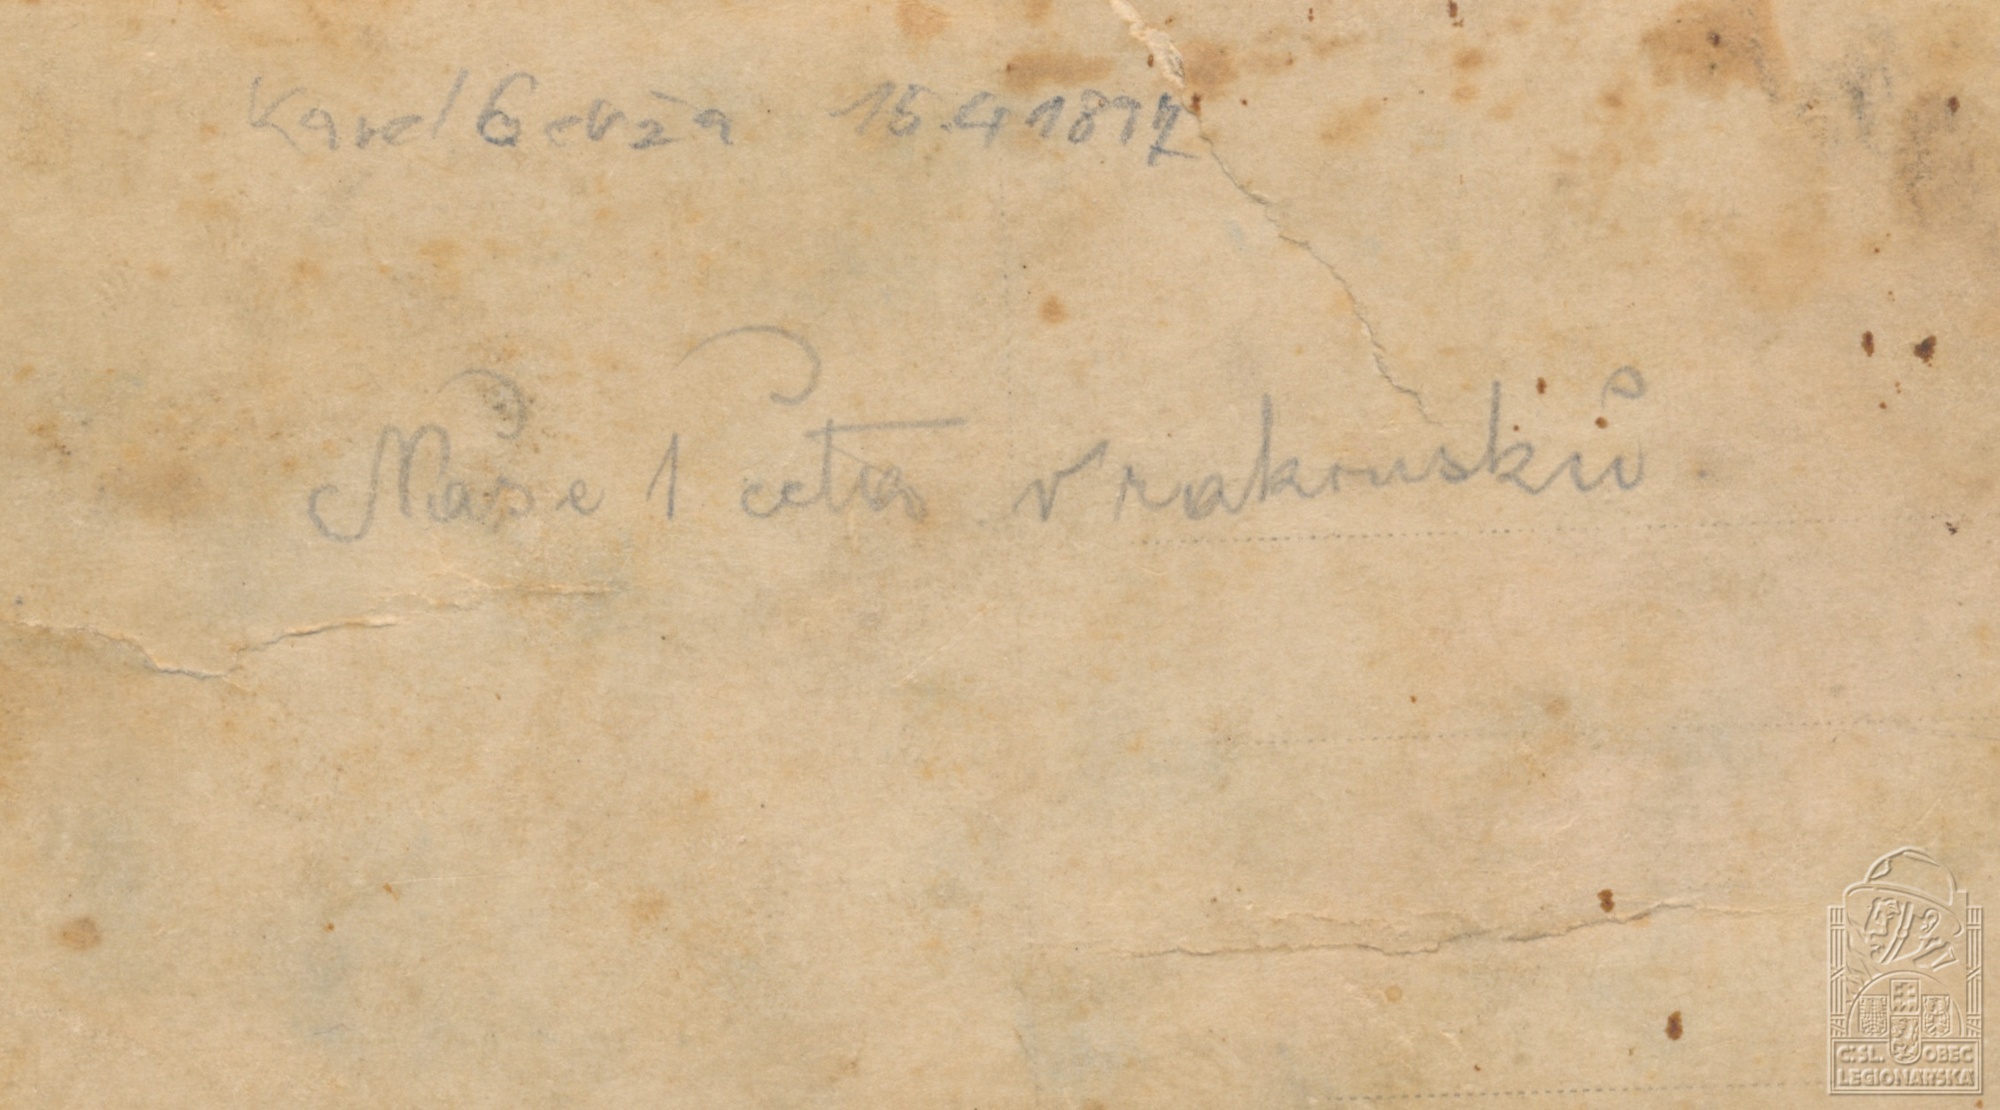 Karel Gerža 15.4 1897
Naše 1 četa v rakousků.
Č:SL. OBEC
LEGIONÁŘSKÁ